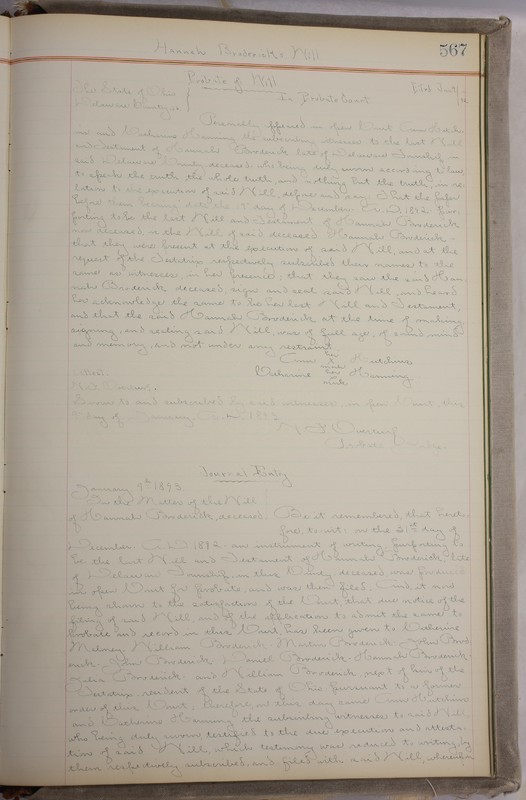 567
Hannah Broderick's Will
Probate of Will
The State of Ohio
Delaware County, ss In Probate Court
Personally appeared in open Court Ann Hutch-
ins and Catherine Hanning the subscribing witnesses to the last Will
and Testament of Hannah Broderick late of Delaware Township in
said Delaware County deceased, who being duly sworn according to law,
to speak the truth, the whole truth, and nothing but the truth, in re-
lation to the execution of said Will, depose and say: That the paper
before them bearing date the day of A.D. 1892 Pur-
porting to be the last Will and Testament of Hannah Broderick
now deceased, is the Will of said deceased Hannah Broderick
that they were present at the execution of said Will, and at the
request of the Testatrix respectively subscribed their names to the
same as witnesses in her presence; that they saw the said Han-
nah Broderick deceased, sign and seal said Will, and heard
her acknowledge the same to be her last Will and Testament,
and that the said Hannah Broderick at the time of making,
signing, and sealing said Will, was of full age, of sound mind
and memory, and not under any restraint.
Ann her x mark Hutchins
Catherine her x mark Hanning
Attest.
Sworn to and subscribed by said witnesses, in open Court, this
day of January, A.D.
Probate Judge
Journal Entry
January 9th 1893
In the Matter of the Will
of Hannah Broderick, deceased. Be it remembered, that hereto-
fore, to-wit: on the 21st day of
December A.D. 1892. an instrument of writing, purporting to
be the last Will and Testament of Hannah Broderick, late
of Delaware Township, in this County deceased, was produced
in open Court for probate and was then filed; And, it now
being shown to the satisfaction of the Court that due notice of the
filing of said Will, and of the application to admit the same to
probate and record in this Court, has been given to Catherine
William Broderick, Martin Broderick, John Brod-
erick, John Broderick, Broderick, Hannah Broderick
Broderick and William Broderick, next of kin of the
Testatrix, resident of the State of Ohio pursuant to a former
order of this Court; Therefore, on this day came Ann Hutchins
and Catherine Hanning the subscribing witnesses to said Will,
who being duly sworn testified to the due execution and attesta-
tion of said Will, which testimony was reduced to writing, by
them respectively subscribed, and filed with said Will, whereupon